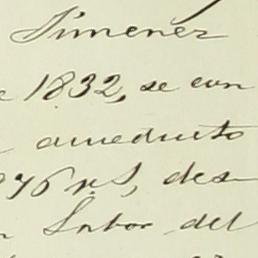 Jimenez
e 1832, se con
acueducto
976 rs, des-
n Labor del